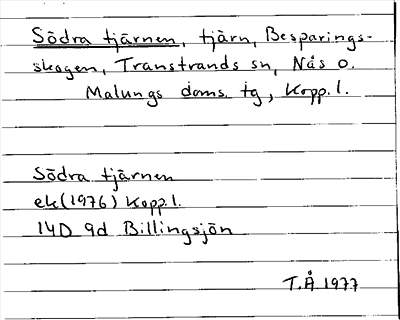 Södra tjärnen, tjärn, Besparings-
skogen, Transtrands sn, Nås o.
Malungs doms. tg, Kopp. l.
Södra tjärnen
ek (1976) Kopp. l.
14D 9d Billingsjön
T.Å 1977